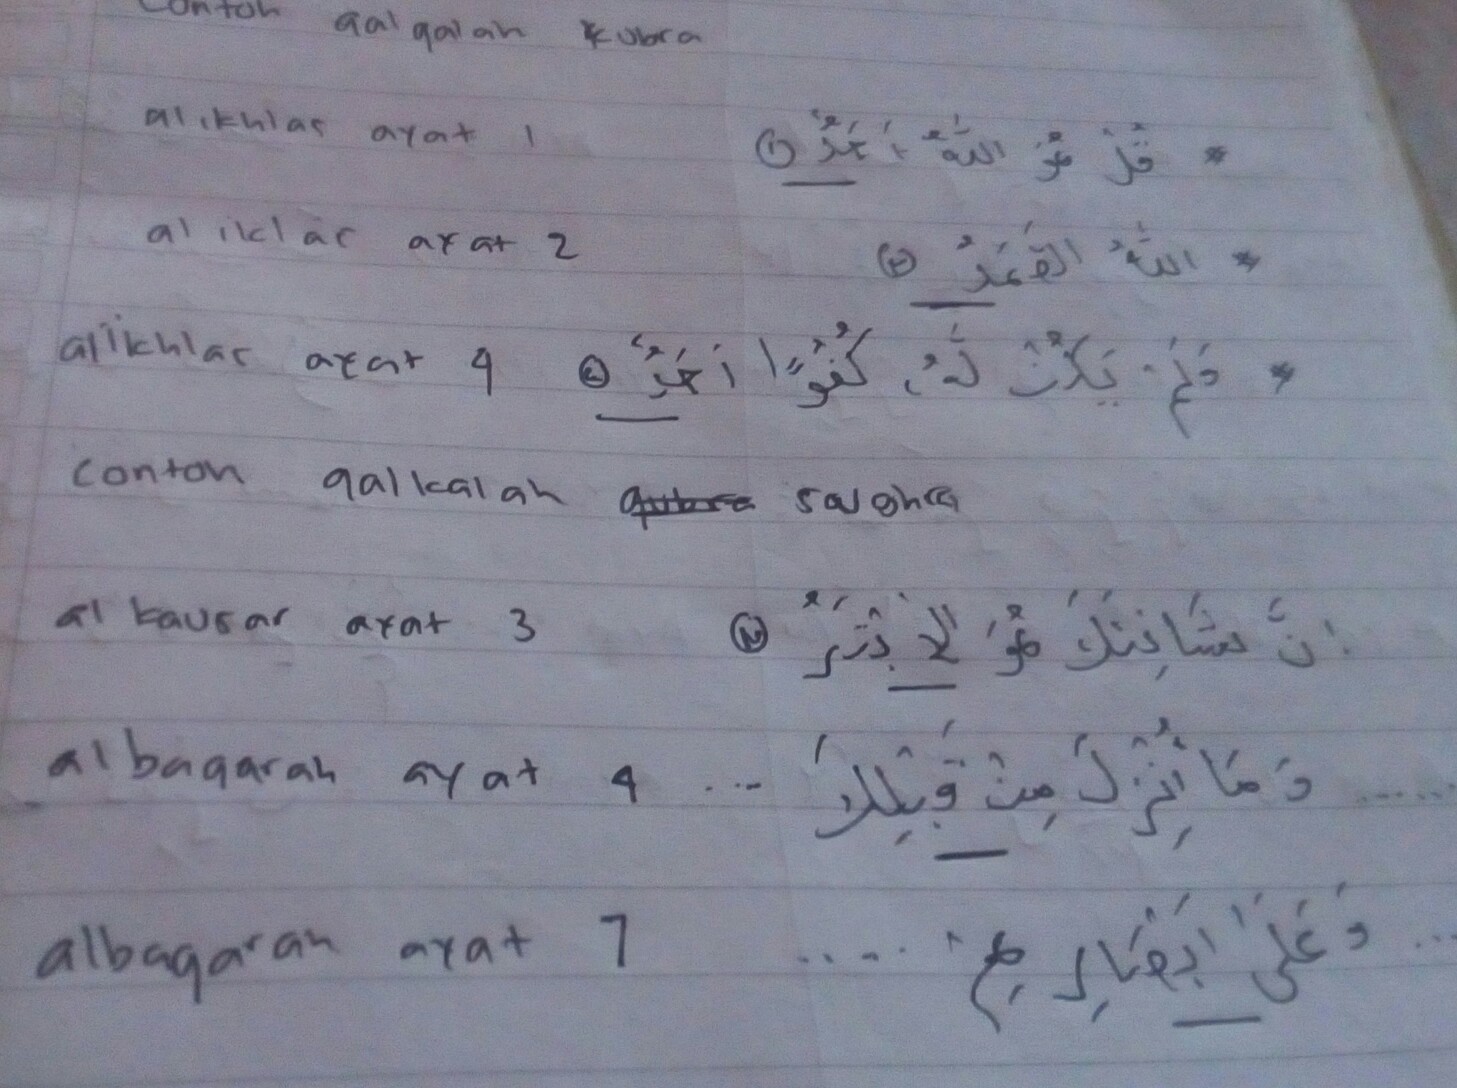 contoh qalqalah kubra
alikhlas ayat 1 قُلْ هُوَ اللّٰهُ اَحَدٌ ١ *
al iklas ayat 2 اَللّٰهُ الصَّمَدُ ٢ *
alikhlas ayat 4 وَلَمْ يَكُنْ لَّهٗ كُفُوًا اَحَدٌ ٤ *
contoh qalkalah sughra
al kausar ayat 3 اِنَّ شَانِئَكَ هُوَ الْاَبْتَرُ ٣
albaqarah ayat 4 ... وَمَا اُنْزِلَ مِنْ قَبْلِكَ ......
albaqarah ayat 7 ..... وَعَلٰى اَبْصَارِهِمْ ...